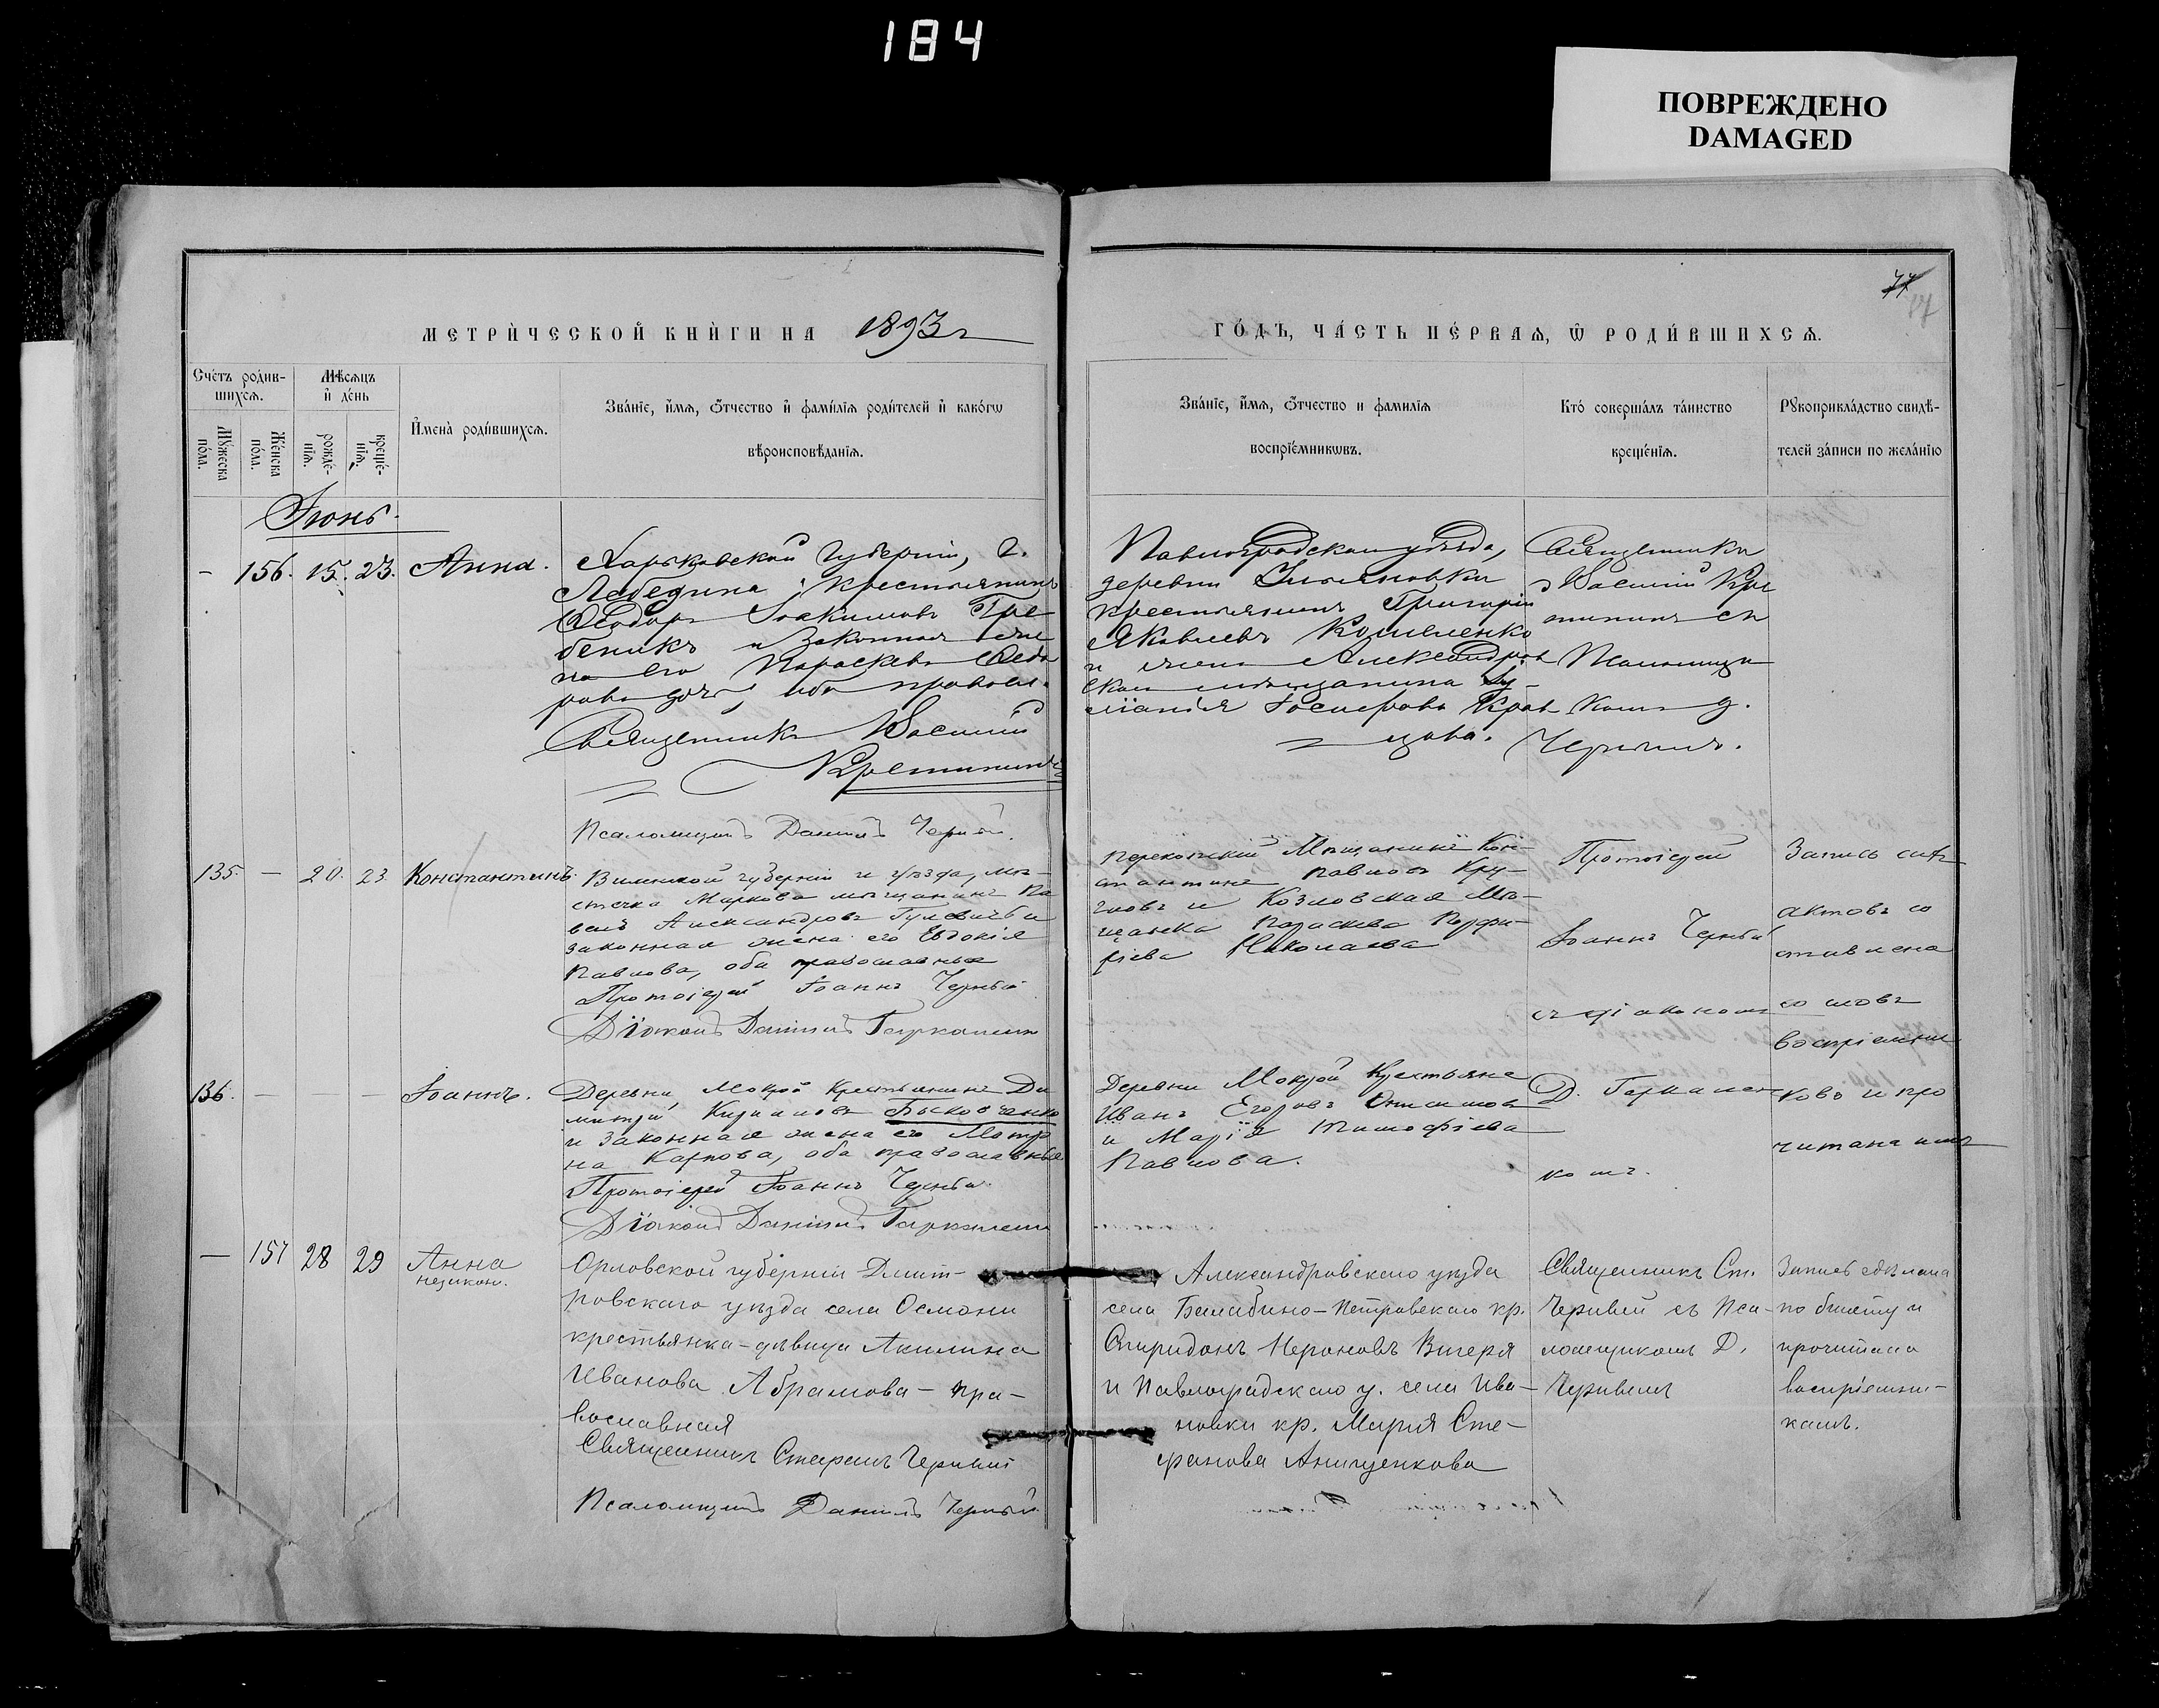 184
ПОВРЕЖДЕНО
DAMAGED
77
МЕТРИ́ЧЕСКОЙ КНИ́ГИ НА 1893 г
ГО́ДЪ, ЧА́СТЬ ПЕ́РВАЯ, Ѡ РОДИ́ВШИХСЯ.
Сче́тъ роди́в-
шихся.
Мѣ́сяцъ
и де́нь
Му́жеска
по́ла.
Же́нска
по́ла.
рожде́-
нїя.
креще́-
нїя.
И҆мена̀ роди́вшихся.
Зва́нїе, и҆́мя, ѻ҆́тчество и҆ фами́лїя роди́телей и҆ како́гѡ
вѣроисповѣ́данїя.
Зва́нїе, и҆́мя, ѻ҆́тчество и фами́лїя
воспрїе́мникѡвъ.
Кто̀ соверша́лъ та́инство
креще́нїя.
Рꙋкоприкла́дство свидѣ́-
телей за́писи по жела́нїю
Іюнь.
– 156. 15. 23. Анна.
Харьковской губерніи, г.
Лебедина, крестьянинъ
Ѳеодоръ Іоакимовъ Гре
беникъ и законная же
на его Параскева Ѳедо
рова, оба правосл.
Священникъ Василій
Кретининъ
Псаломщикъ Даніилъ Черный.
Павлоградскаго уѣзда,
деревни Ульяновки
крестьянинъ Григорій
Яковлевъ Кошеленко
и Александров
скаго мѣщанина
Іосифова Крав
цова.
Священникъ
Василій Кре
тининъ съ
Псаломщи
комъ Д.
Чернымъ.
135. — 20. 23. Константинъ.
Виленской губерніи и уѣзда, мѣ-
стечка Маркова мѣщанинъ Па
велъ Александровъ Гулевичъ и
законная жена его Евдокія
Павлова, оба православные
Протоіерей Іоаннъ Черный
Діаконъ Даніилъ Гаркалем
Перекопскій Мѣщанинъ Кон-
стантинъ Павловъ Кру-
гловъ и Козловская Мѣ-
щанка Параскева Порфи-
ріева Николаева
Протоіерей
Іоаннъ Черный
съ діакономъ
Запись сихъ
актовъ со
ставлена
со словъ
воспріемни
136. — — — Іоаннъ.
Деревни Мокрой Крестьянинъ Ди
митрій Киріановъ Быковченко
и законная жена его Матро
на Карпова, оба православные
Протоіерей Іоаннъ Черный.
Діаконъ Даніилъ Гаркалем
Деревни Мокрой Крестьяне
Иванъ Егоровъ Онисимов
и Марія Тимофіева
Павлова.
Д. Гаркален-
комъ.
ковъ и про
читана имъ
— 157 28 29 Анна
незакон.
Орловской губерніи Дмит-
ровскаго уѣзда села Осмони
крестьянка-дѣвица Акилина
Иванова Абрамова – пра-
вославная
Священникъ Стефанъ Черный
Псаломщикъ Даніилъ Черный.
Александровскаго уѣзда
села Балабино-Петровскаго кр.
Спиридонъ Нероновъ Вигеря
и Павлоградскаго у. села Ива-
новки кр. Марія Сте-
фанова Анищенкова
Священникъ Ст.
Черный съ Пса-
ломщикомъ Д.
Чернымъ
Запись сдѣлана
по билету и
прочитана
воспріемни-
камъ.